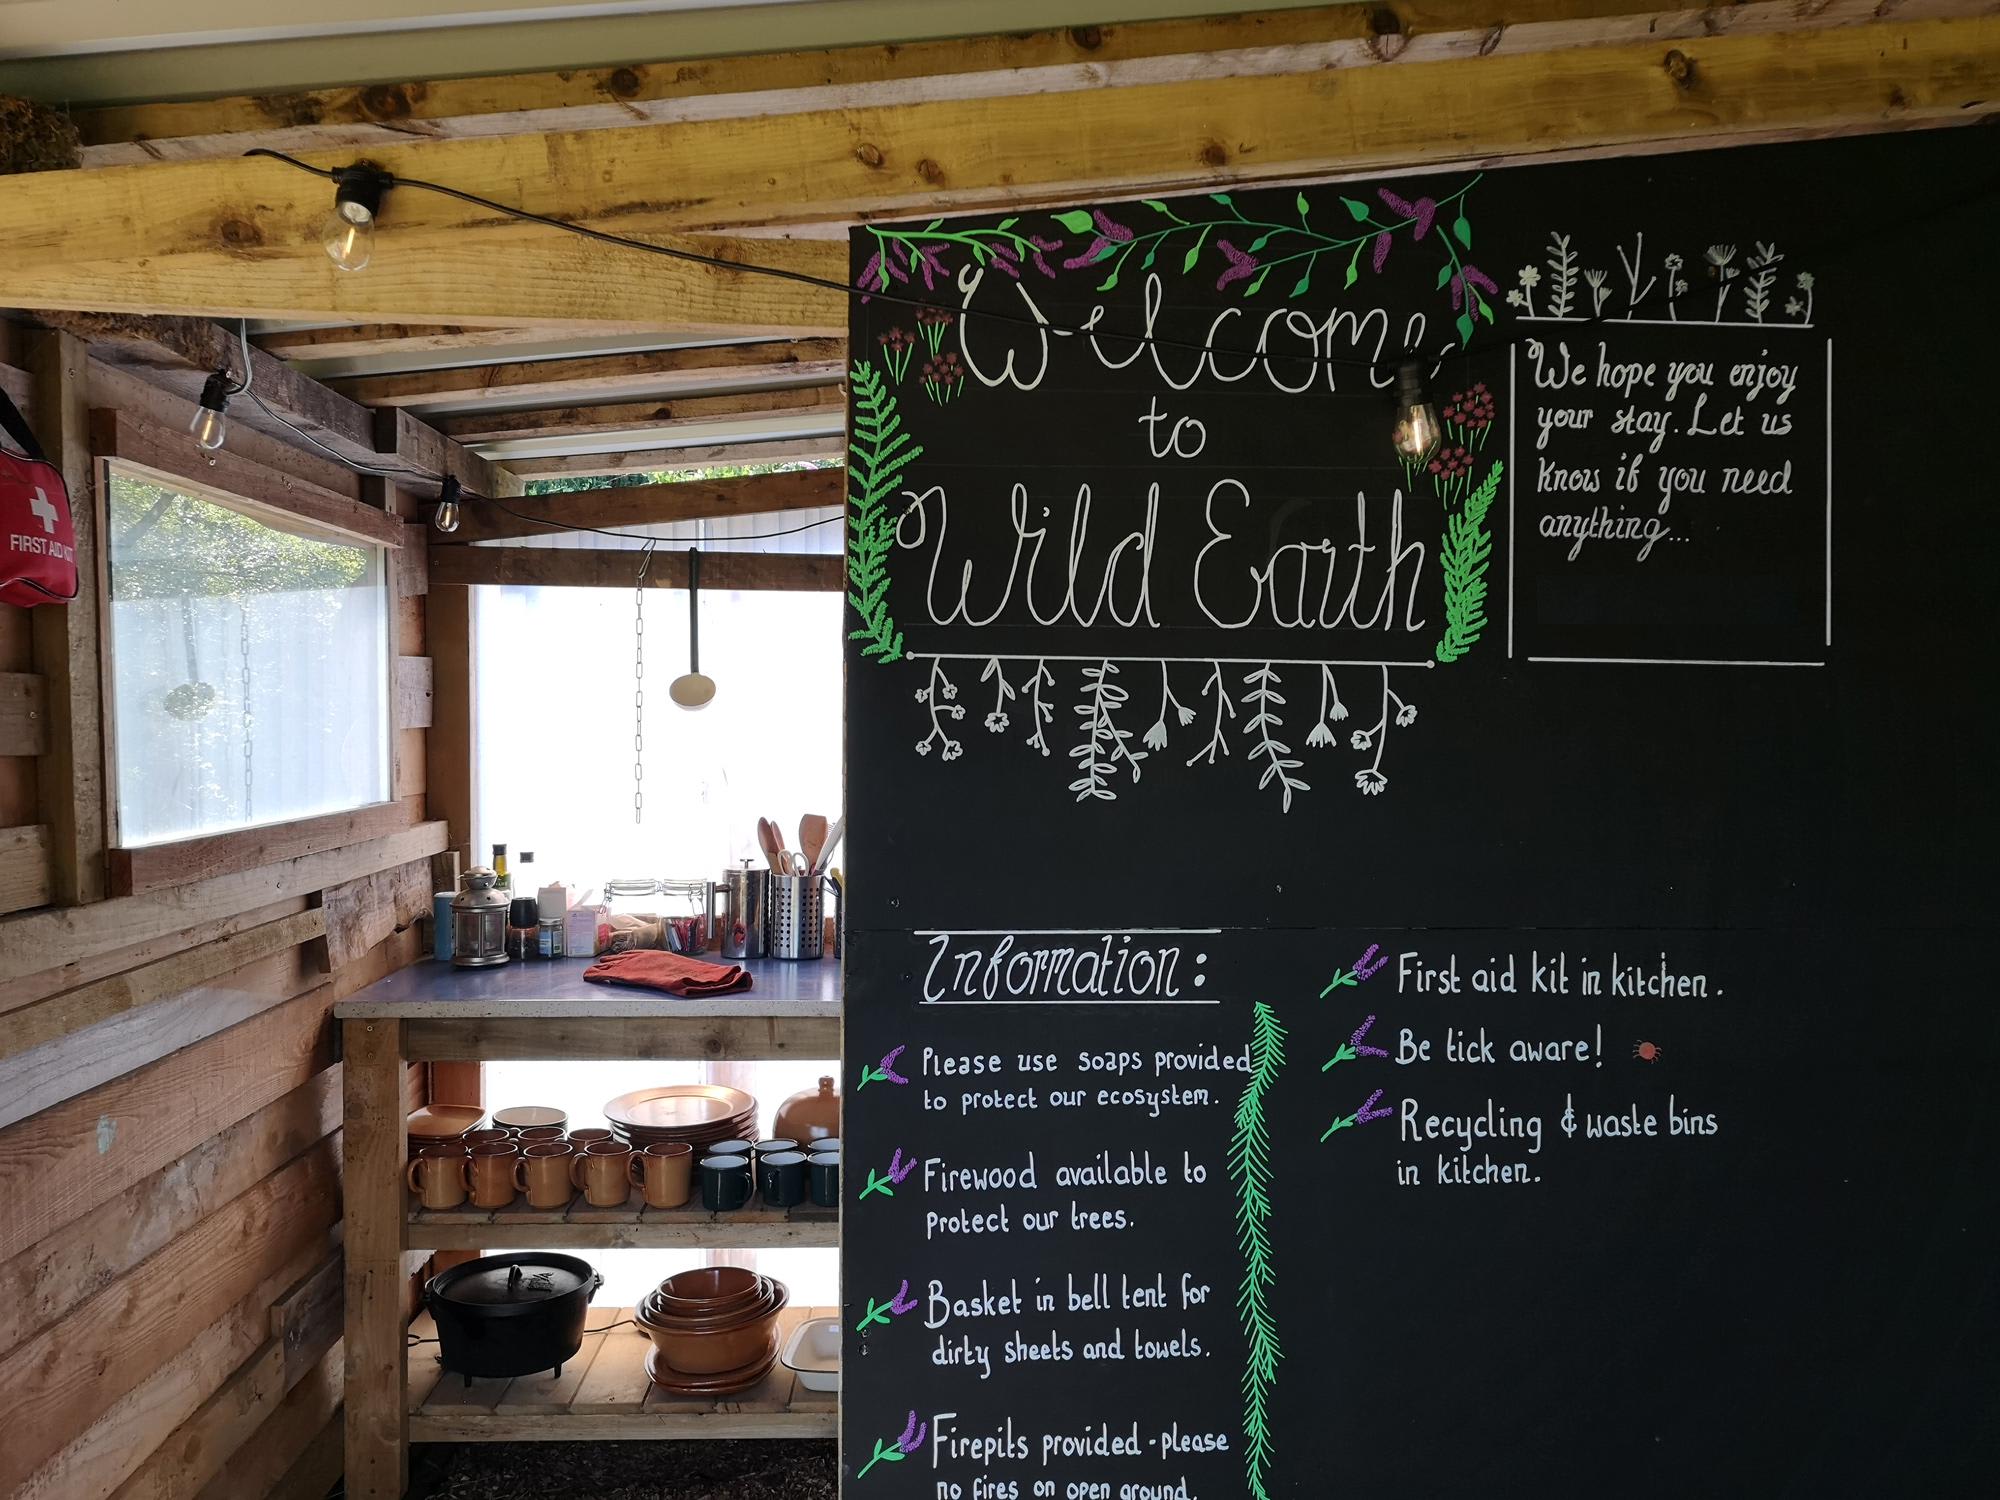 FIRST AID KIT
Welcome
to
Wild Earth
We hope you enjoy
your stay. Let us
know if you need
anything...
Information:
Please use soaps provided
to protect our ecosystem.
Firewood available to
protect our trees.
Basket in bell tent for
dirty sheets and towels.
Firepits provided - please
no fires on open ground.
First aid kit in kitchen.
Be tick aware!
Recycling & waste bins
in kitchen.